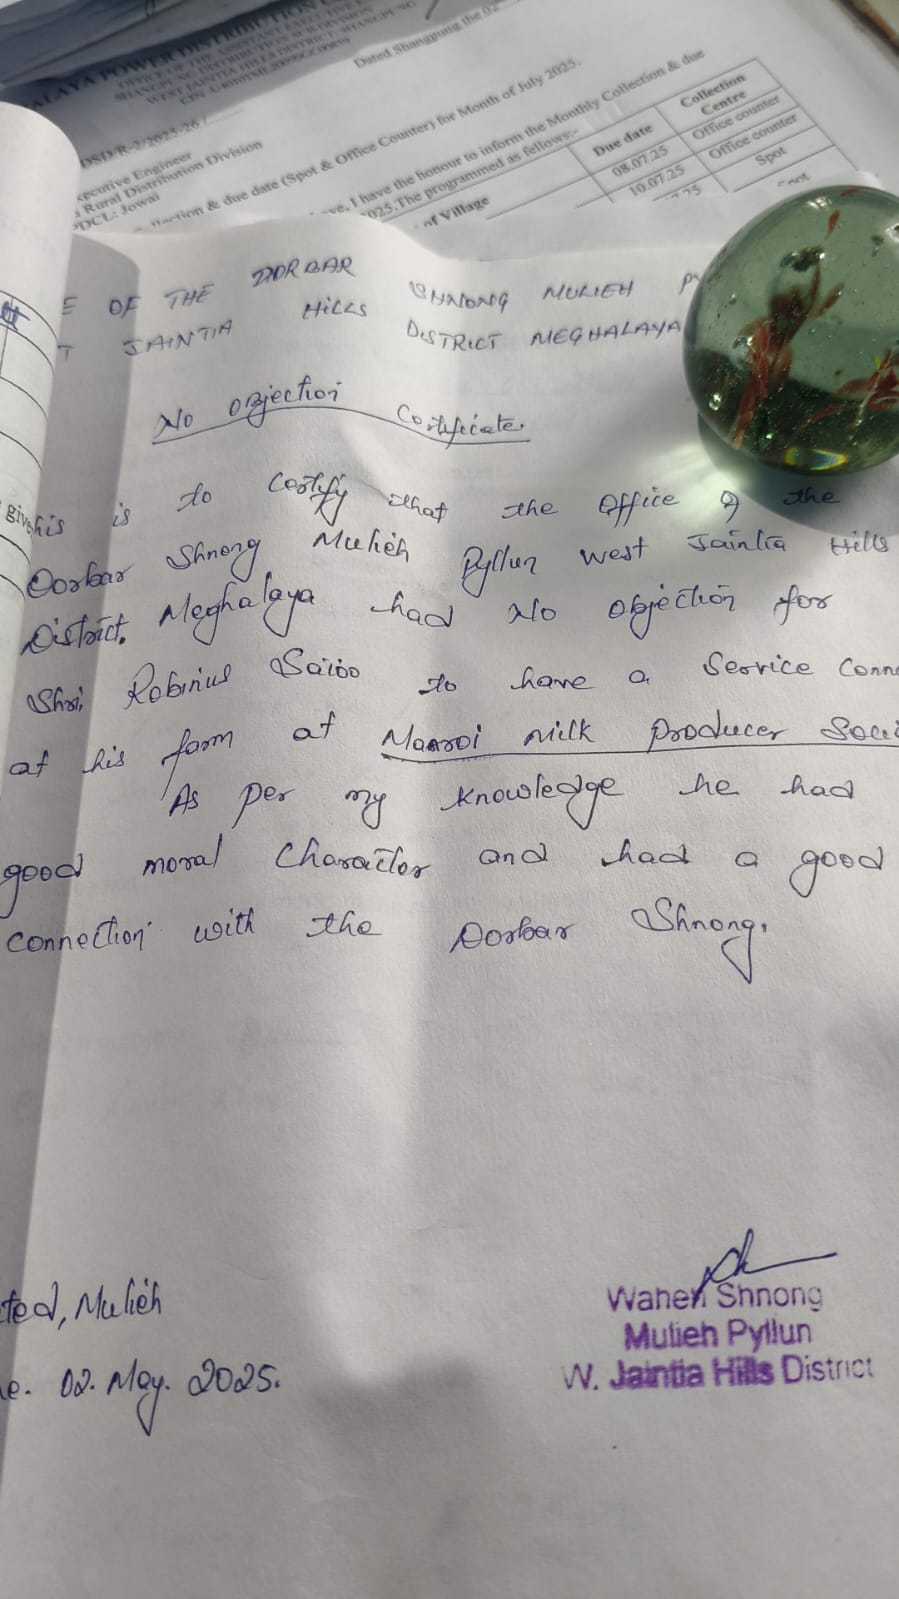 ALAYA POWER DISTRIBUTION
SHANGPUNG DISTRIBUTION SUB DIVISION
WEST JAINTIA HILLS DISTRICT, SHANGPUNG
Dated Shangpung the 02
DSD/R-2/2025-26/
xecutive Engineer
Rural Distribution Division
PDCL: Jowai
llection & due date (Spot & Office Counter) for Month of July 2025.
ve, I have the honour to inform the Monthly Collection & due
025. The programmed as fellows:-
of Village
Due date
Collection Centre
08.07.25
Office counter
10.07.25
Office counter
Spot
E OF THE DORBAR SHNONG MULIEH P
T JAINTIA HILLS DISTRICT MEGHALAYA
No objection Certificate.
give
his is to Certify that the office of the
Dorbar Shnong Mulieh Pyllun West Jaintia Hills
District. Meghalaya had No objection for
Shri, Robinus Saioo to have a Service Conne
at his farm at Maaroi milk Producer Soci
As per my knowledge he had
good moral Character and had a good
Connection with the Dorbar Shnong.
ted, Mulieh
e. 02. May. 2025.
Waheh Shnong
Mulieh Pyllun
W. Jaintia Hills District